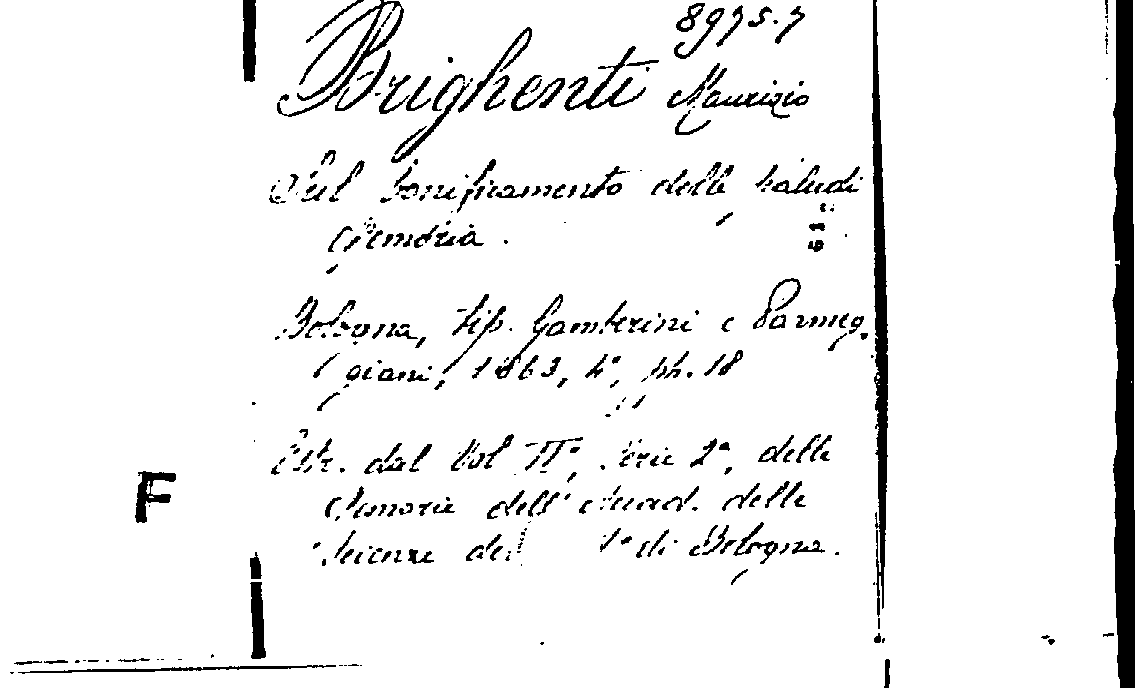 8975.7
Brighenti Maurizio
Sul bonificamento delle paludi
Memoria.
Bologna, tip. Gamberini e Parmeg
giani, 1863, 4°, pp. 18
Estr. dal Vol II°, Serie 2ª, delle
Memorie dell'Accad. delle
Scienze di Bologna.
F